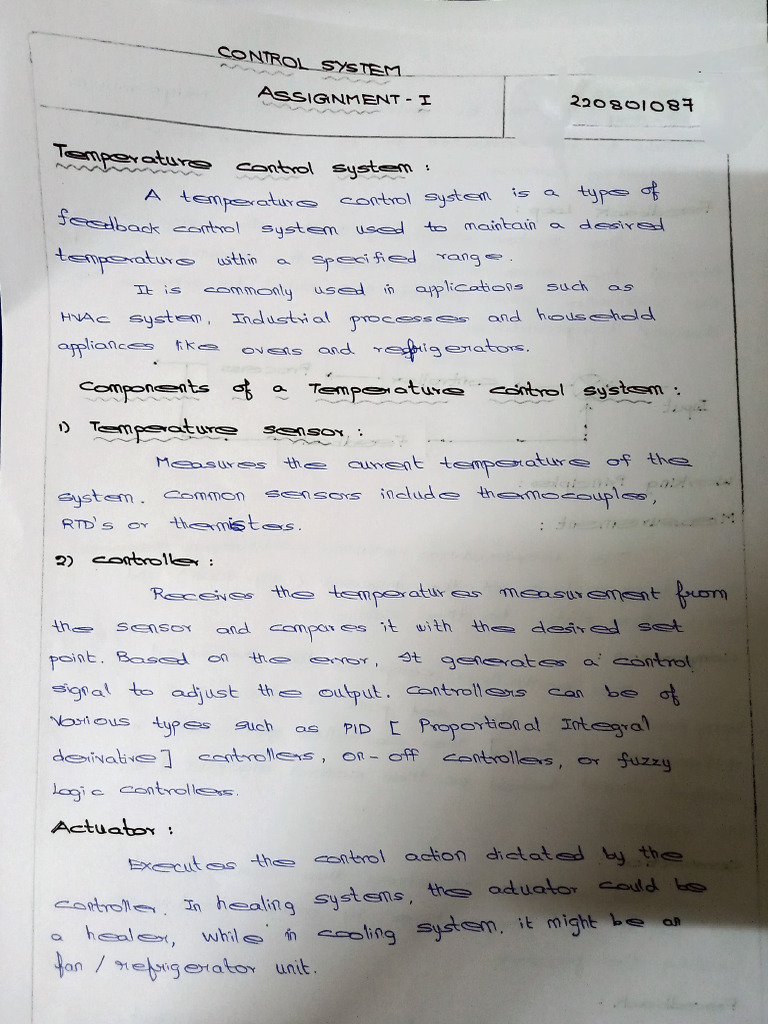 CONTROL SYSTEM
ASSIGNMENT - I
220801087
Temperature control system :
A temperature control system is a type of
feedback control system used to maintain a desired
temperature within a specified range.
It is commonly used in applications such as
HVAC system, Industrial processes and household
appliances like ovens and refrigerators.
Components of a Temperature control system :
1) Temperature sensor :
Measures the current temperature of the
system. Common sensors include thermocouples,
RTD's or thermisters.
2) Controller :
Receives the temperatures measurement from
the sensor and compares it with the desired set
point. Based on the error, It generates a control
signal to adjust the output. Controllers can be of
Various types such as PID [ Proportional Integral
derivative ] controllers, on-off controllers, or fuzzy
Logic controllers.
Actuator :
Executes the control action dictated by the
controller. In healing systems, the actuator could be
a healer, while in cooling system, it might be an
fan / refrigerator unit.